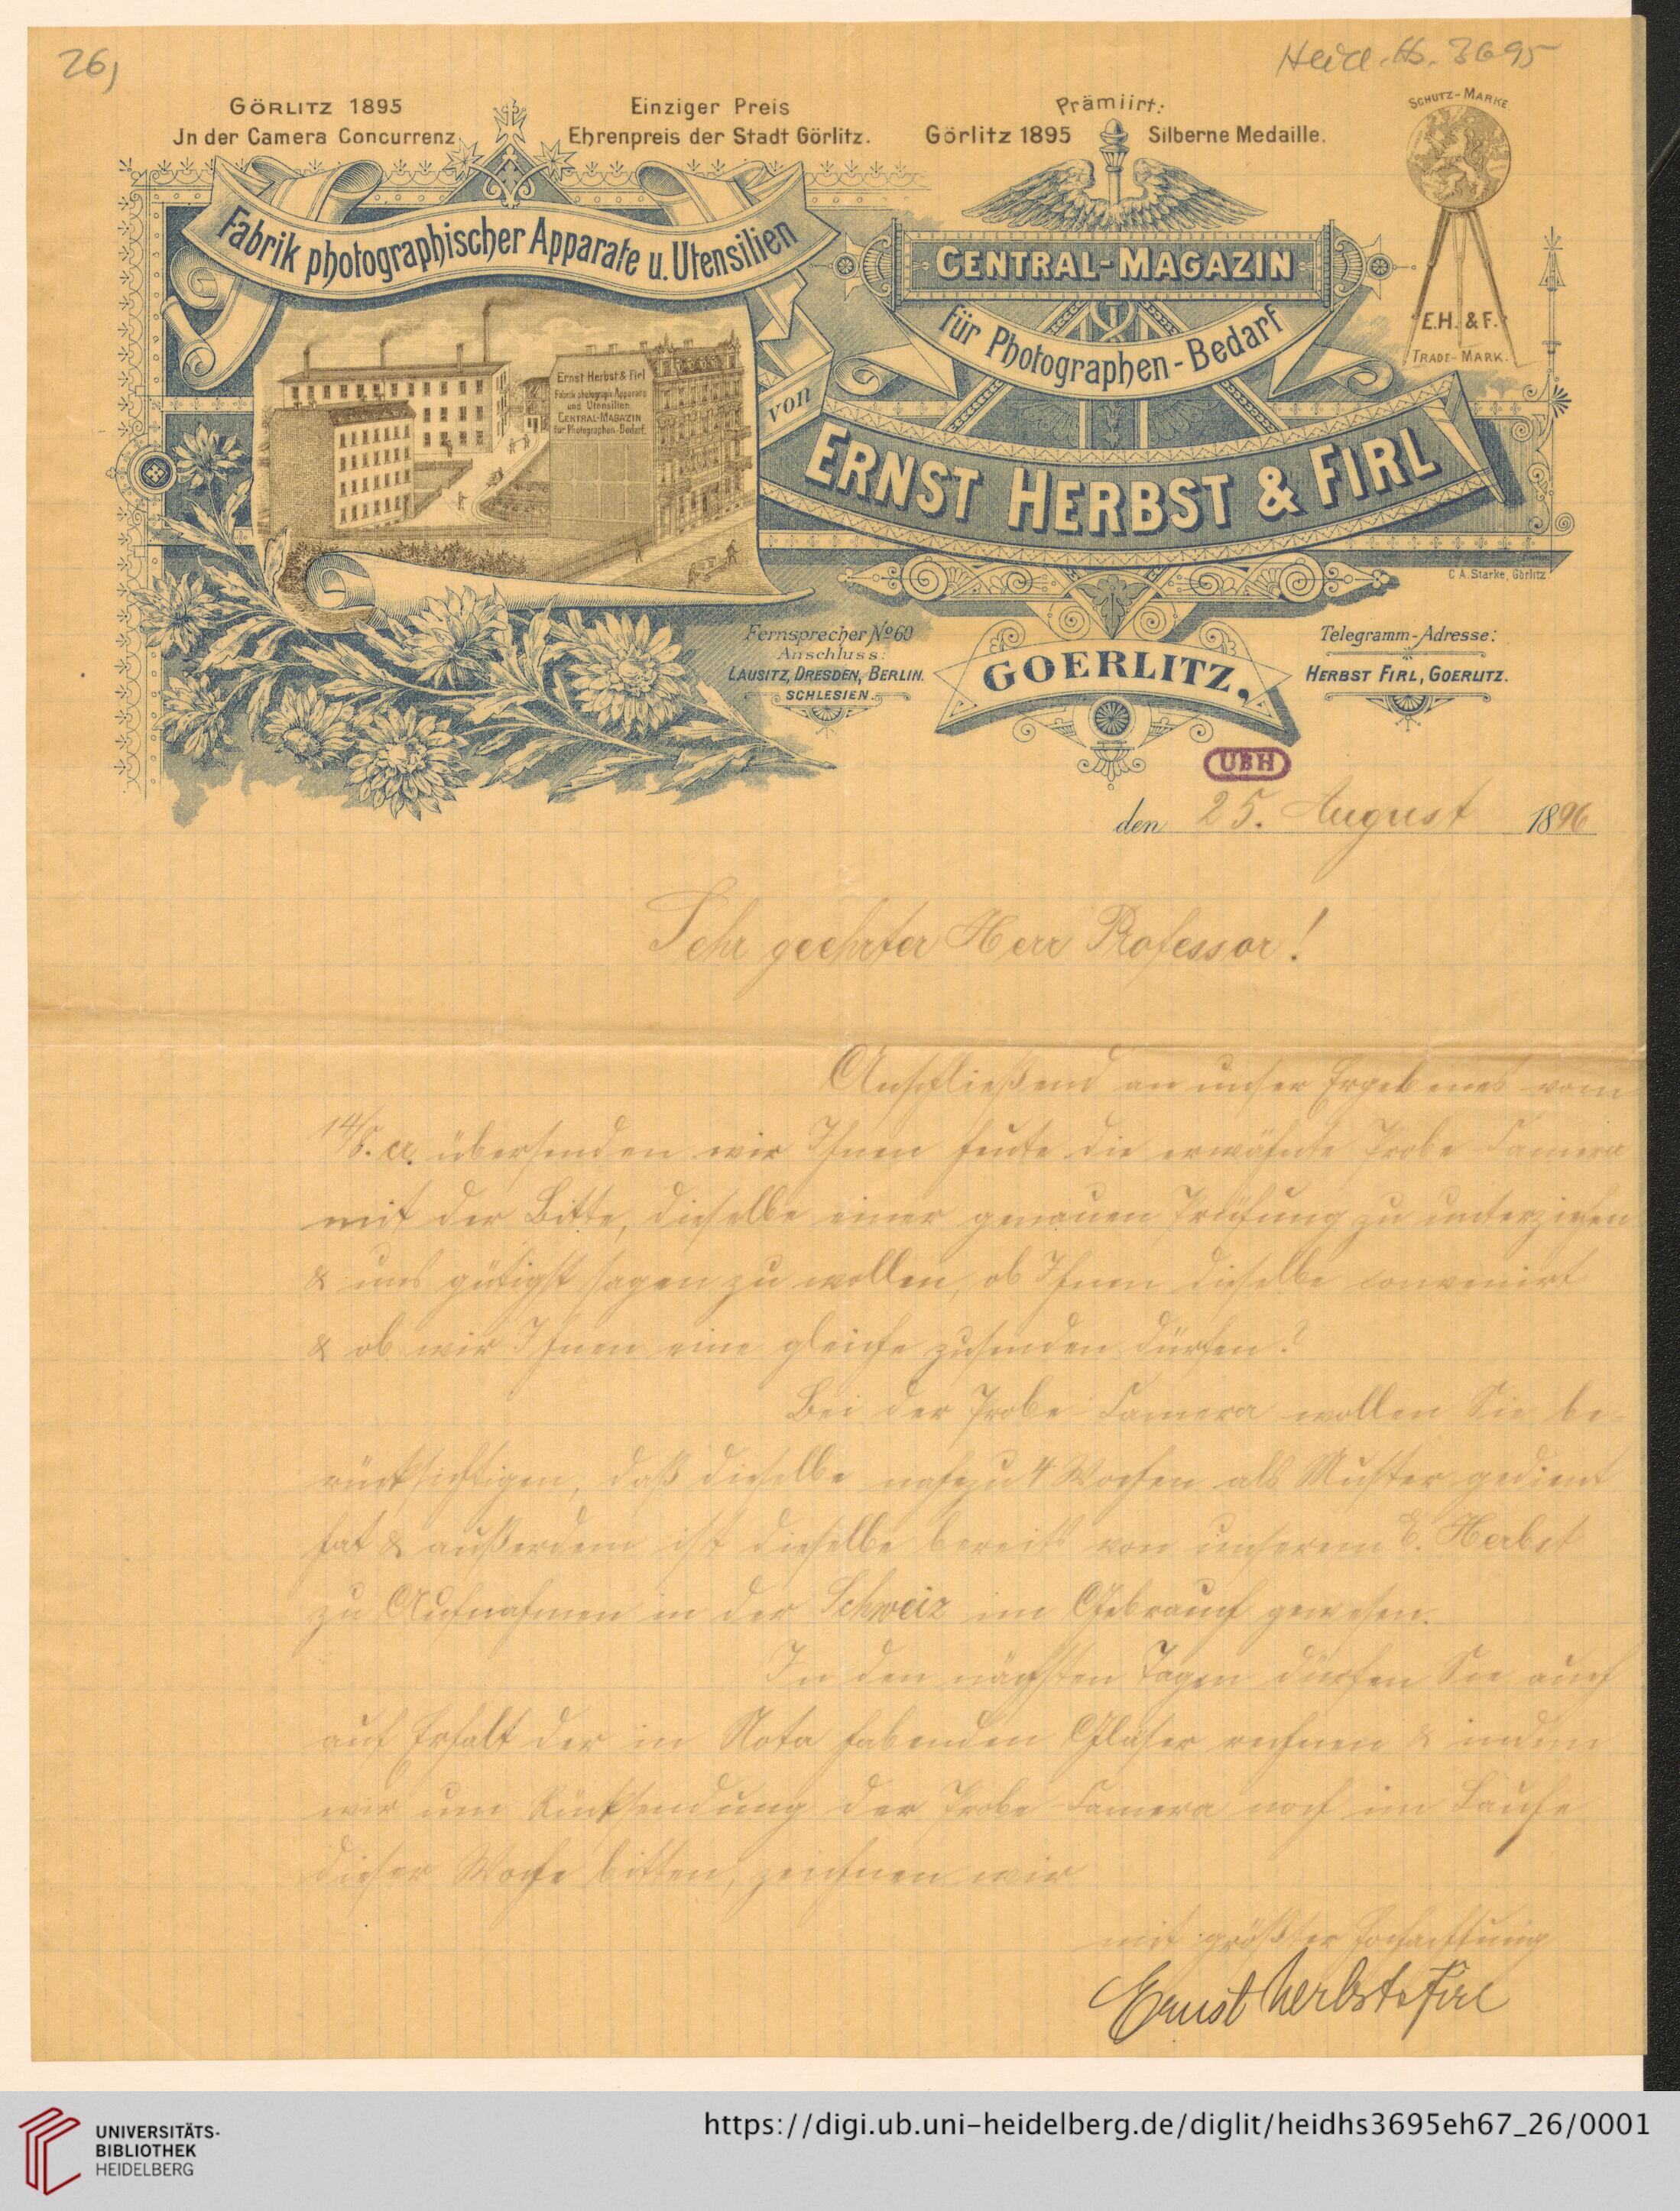 26)
Heid. Hs. 3695
GÖRLITZ 1895
Jn der Camera Concurrenz.
Einziger Preis
Ehrenpreis der Stadt Görlitz.
Prämiirt:
Görlitz 1895 Silberne Medaille.
SCHUTZ-MARKE
E.H. & F.
TRADE-MARK.
Fabrik photographischer Apparate u. Utensilien
CENTRAL-MAGAZIN
für Photographen-Bedarf
von
ERNST HERBST & FIRL
Ernst Herbst & Firl
Fabrik photograph. Apparate
und Utensilien
CENTRAL-MAGAZIN
für Photographen-Bedarf.
C.A. Starke, Görlitz
Fernsprecher No 60
Anschluss:
LAUSITZ, DRESDEN, BERLIN.
SCHLESIEN.
GOERLITZ,
Telegramm-Adresse:
HERBST FIRL, GOERLITZ.
UBH
den 25. August 1896
Sehr geehrter Herr Professor!
Anschließend an unser Ergebenes vom
14/8. cr. übersenden wir Ihnen heute die erwähnte Probe Camera
mit der Bitte, dieselbe einer genauen Prüfung zu unterziehen
& uns gütigst sagen zu wollen, ob Ihnen dieselbe convenirt
& ob wir Ihnen eine gleiche zusenden dürfen?
Bei der Probe-Camera wollen Sie be-
rücksichtigen, daß dieselbe nahezu 4 Wochen als Muster gedient
hat & außerdem ist dieselbe bereits von unserem E. Herbst
zu Aufnahmen in der Schweiz im Gebrauch gewesen.
In den nächsten Tagen dürfen Sie auch
auf Erhalt der in Nota habenden Gläser rechnen & indem
wir um Rücksendung der Probe-Camera noch im Laufe
dieser Woche bitten, zeichnen wir
mit größter Hochachtung
Ernst Herbst & Firl
UNIVERSITÄTS-
BIBLIOTHEK
HEIDELBERG
https://digi.ub.uni-heidelberg.de/diglit/heidhs3695eh67_26/0001